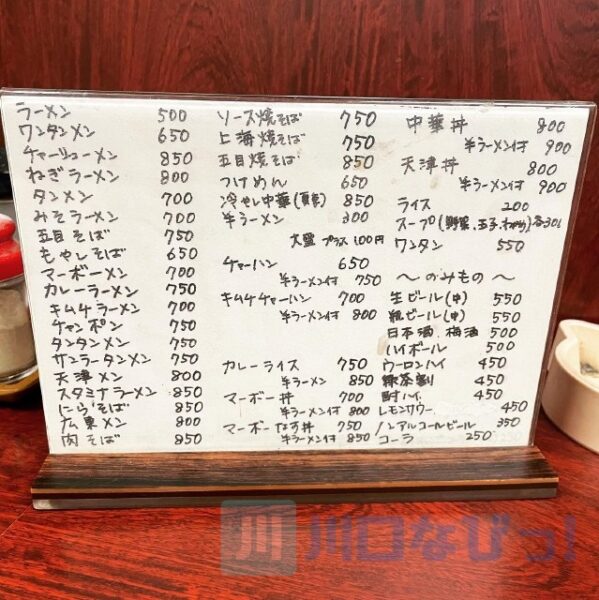 ラーメン 500
ワンタンメン 650
チャーシューメン 850
ねぎラーメン 800
タンメン 700
みそラーメン 700
五目そば 750
もやしそば 650
マーボーメン 700
カレーラーメン 750
キムチラーメン 700
チャンポン 750
タンタンメン 750
サンラータンメン 750
天津メン 800
スタミナラーメン 850
にらそば 850
広東メン 800
肉そば 850
ソース焼そば 750
上海焼そば 750
五目焼そば 850
つけめん 650
冷やし中華(夏季) 850
半ラーメン 300
大盛プラス100円
チャーハン 650
半ラーメン付 750
キムチチャーハン 700
半ラーメン付 800
カレーライス 750
半ラーメン 850
マーボー丼 700
半ラーメン付 800
マーボーなす丼 750
半ラーメン付 850
中華丼 800
半ラーメン付 900
天津丼 800
半ラーメン付 900
ライス 200
スープ(野菜、玉子、わかめ)各300
ワンタン 550
〜のみもの〜
生ビール(中) 550
瓶ビール(中) 550
日本酒、梅酒 500
ハイボール 500
ウーロンハイ 450
緑茶割 450
酎ハイ 450
レモンサワー 450
ノンアルコールビール 350
コーラ 250
川口なびっ!